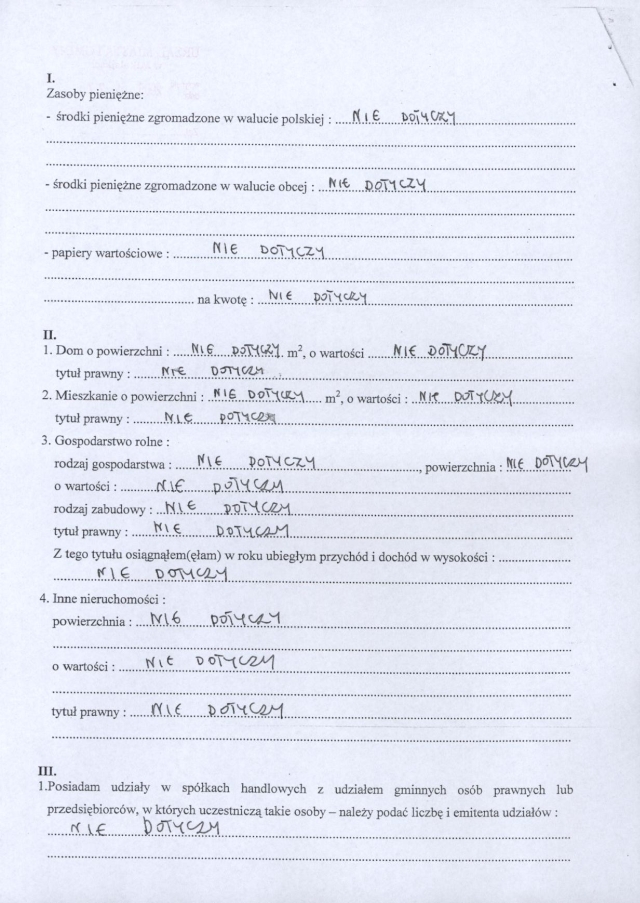 I.
Zasoby pieniężne:
- środki pieniężne zgromadzone w walucie polskiej : ....NIE DOTYCZY
- środki pieniężne zgromadzone w walucie obcej : ...NIE DOTYCZY
- papiery wartościowe : ............NIE DOTYCZY
............................................ na kwotę : ...NIE DOTYCZY
II.
1. Dom o powierzchni : .....NIE DOTYCZY. m², o wartości ......NIE DOTYCZY
tytuł prawny : ........NIE DOTYCZY
2. Mieszkanie o powierzchni : .NIE DOTYCZY..... m², o wartości : ..NIE DOTYCZY
tytuł prawny : .........NIE DOTYCZY
3. Gospodarstwo rolne :
rodzaj gospodarstwa : ......NIE DOTYCZY..............................., powierzchnia : NIE DOTYCZY
o wartości : ..........NIE DOTYCZY
rodzaj zabudowy : ..NIE DOTYCZY
tytuł prawny : ......NIE DOTYCZY
Z tego tytułu osiągnąłem(ęłam) w roku ubiegłym przychód i dochód w wysokości : ......................
............NIE DOTYCZY
4. Inne nieruchomości :
powierzchnia : ....NIE DOTYCZY
o wartości : .......NIE DOTYCZY
tytuł prawny : ......NIE DOTYCZY
III.
1.Posiadam udziały w spółkach handlowych z udziałem gminnych osób prawnych lub
przedsiębiorców, w których uczestniczą takie osoby – należy podać liczbę i emitenta udziałów :
......NIE DOTYCZY